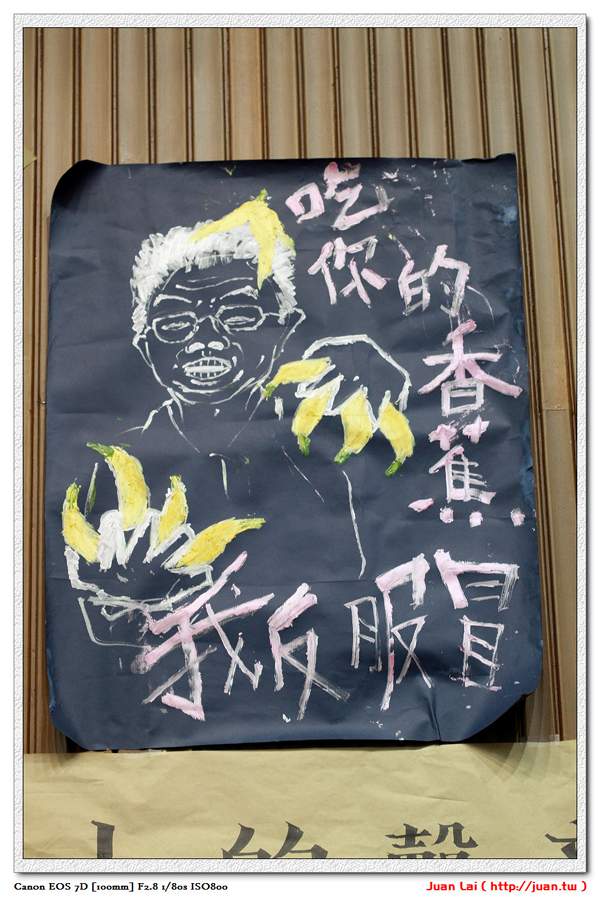 吃你的香蕉
我反服貿
的
Canon EOS 7D [100mm] F2.8 1/80s ISO800
Juan Lai ( http://juan.tw )